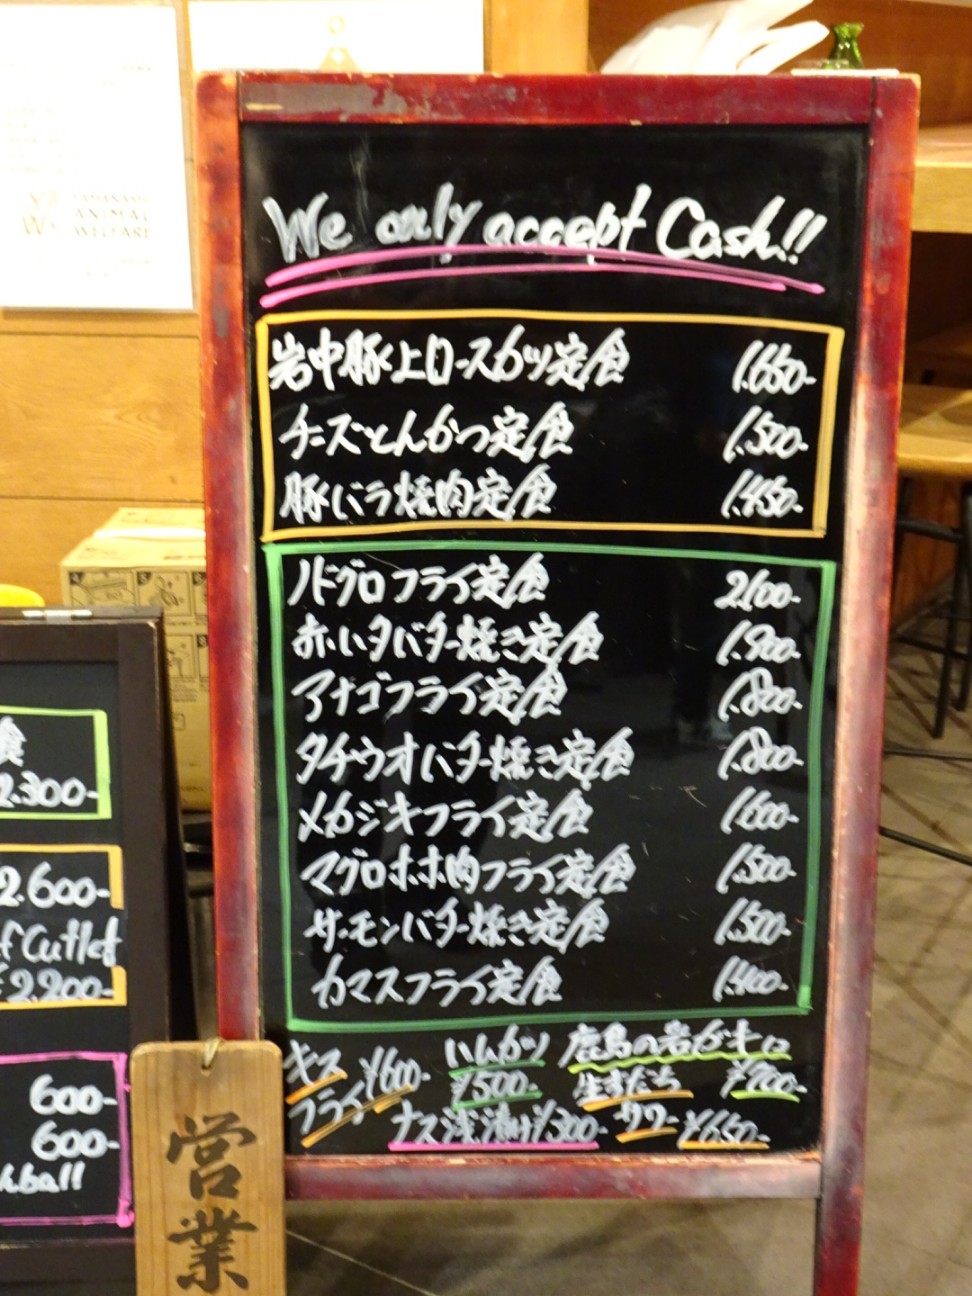 YAMANASHI
ANIMAL
WELFARE
We only accept Cash!!
岩中豚上ロースカツ定食 1.650-
チーズとんかつ定食 1.500-
豚バラ焼肉定食 1.450-
ノドグロフライ定食 2.100-
赤いタバター焼き定食 1.900-
アナゴフライ定食 1.800-
タチウオバター焼き定食 1.800-
メカジキフライ定食 1.600-
マグロホホ肉フライ定食 1.500-
サーモンバター焼き定食 1.500-
カマスフライ定食 1.400-
キスフライ ¥600-
ハムカツ ¥500-
鹿島の岩ガキ ¥700-
ナス浅漬け ¥300-
生すだちサワー ¥650-
食
2.300-
2.600-
f Cutlet
2.200-
600-
600-
ball
営業